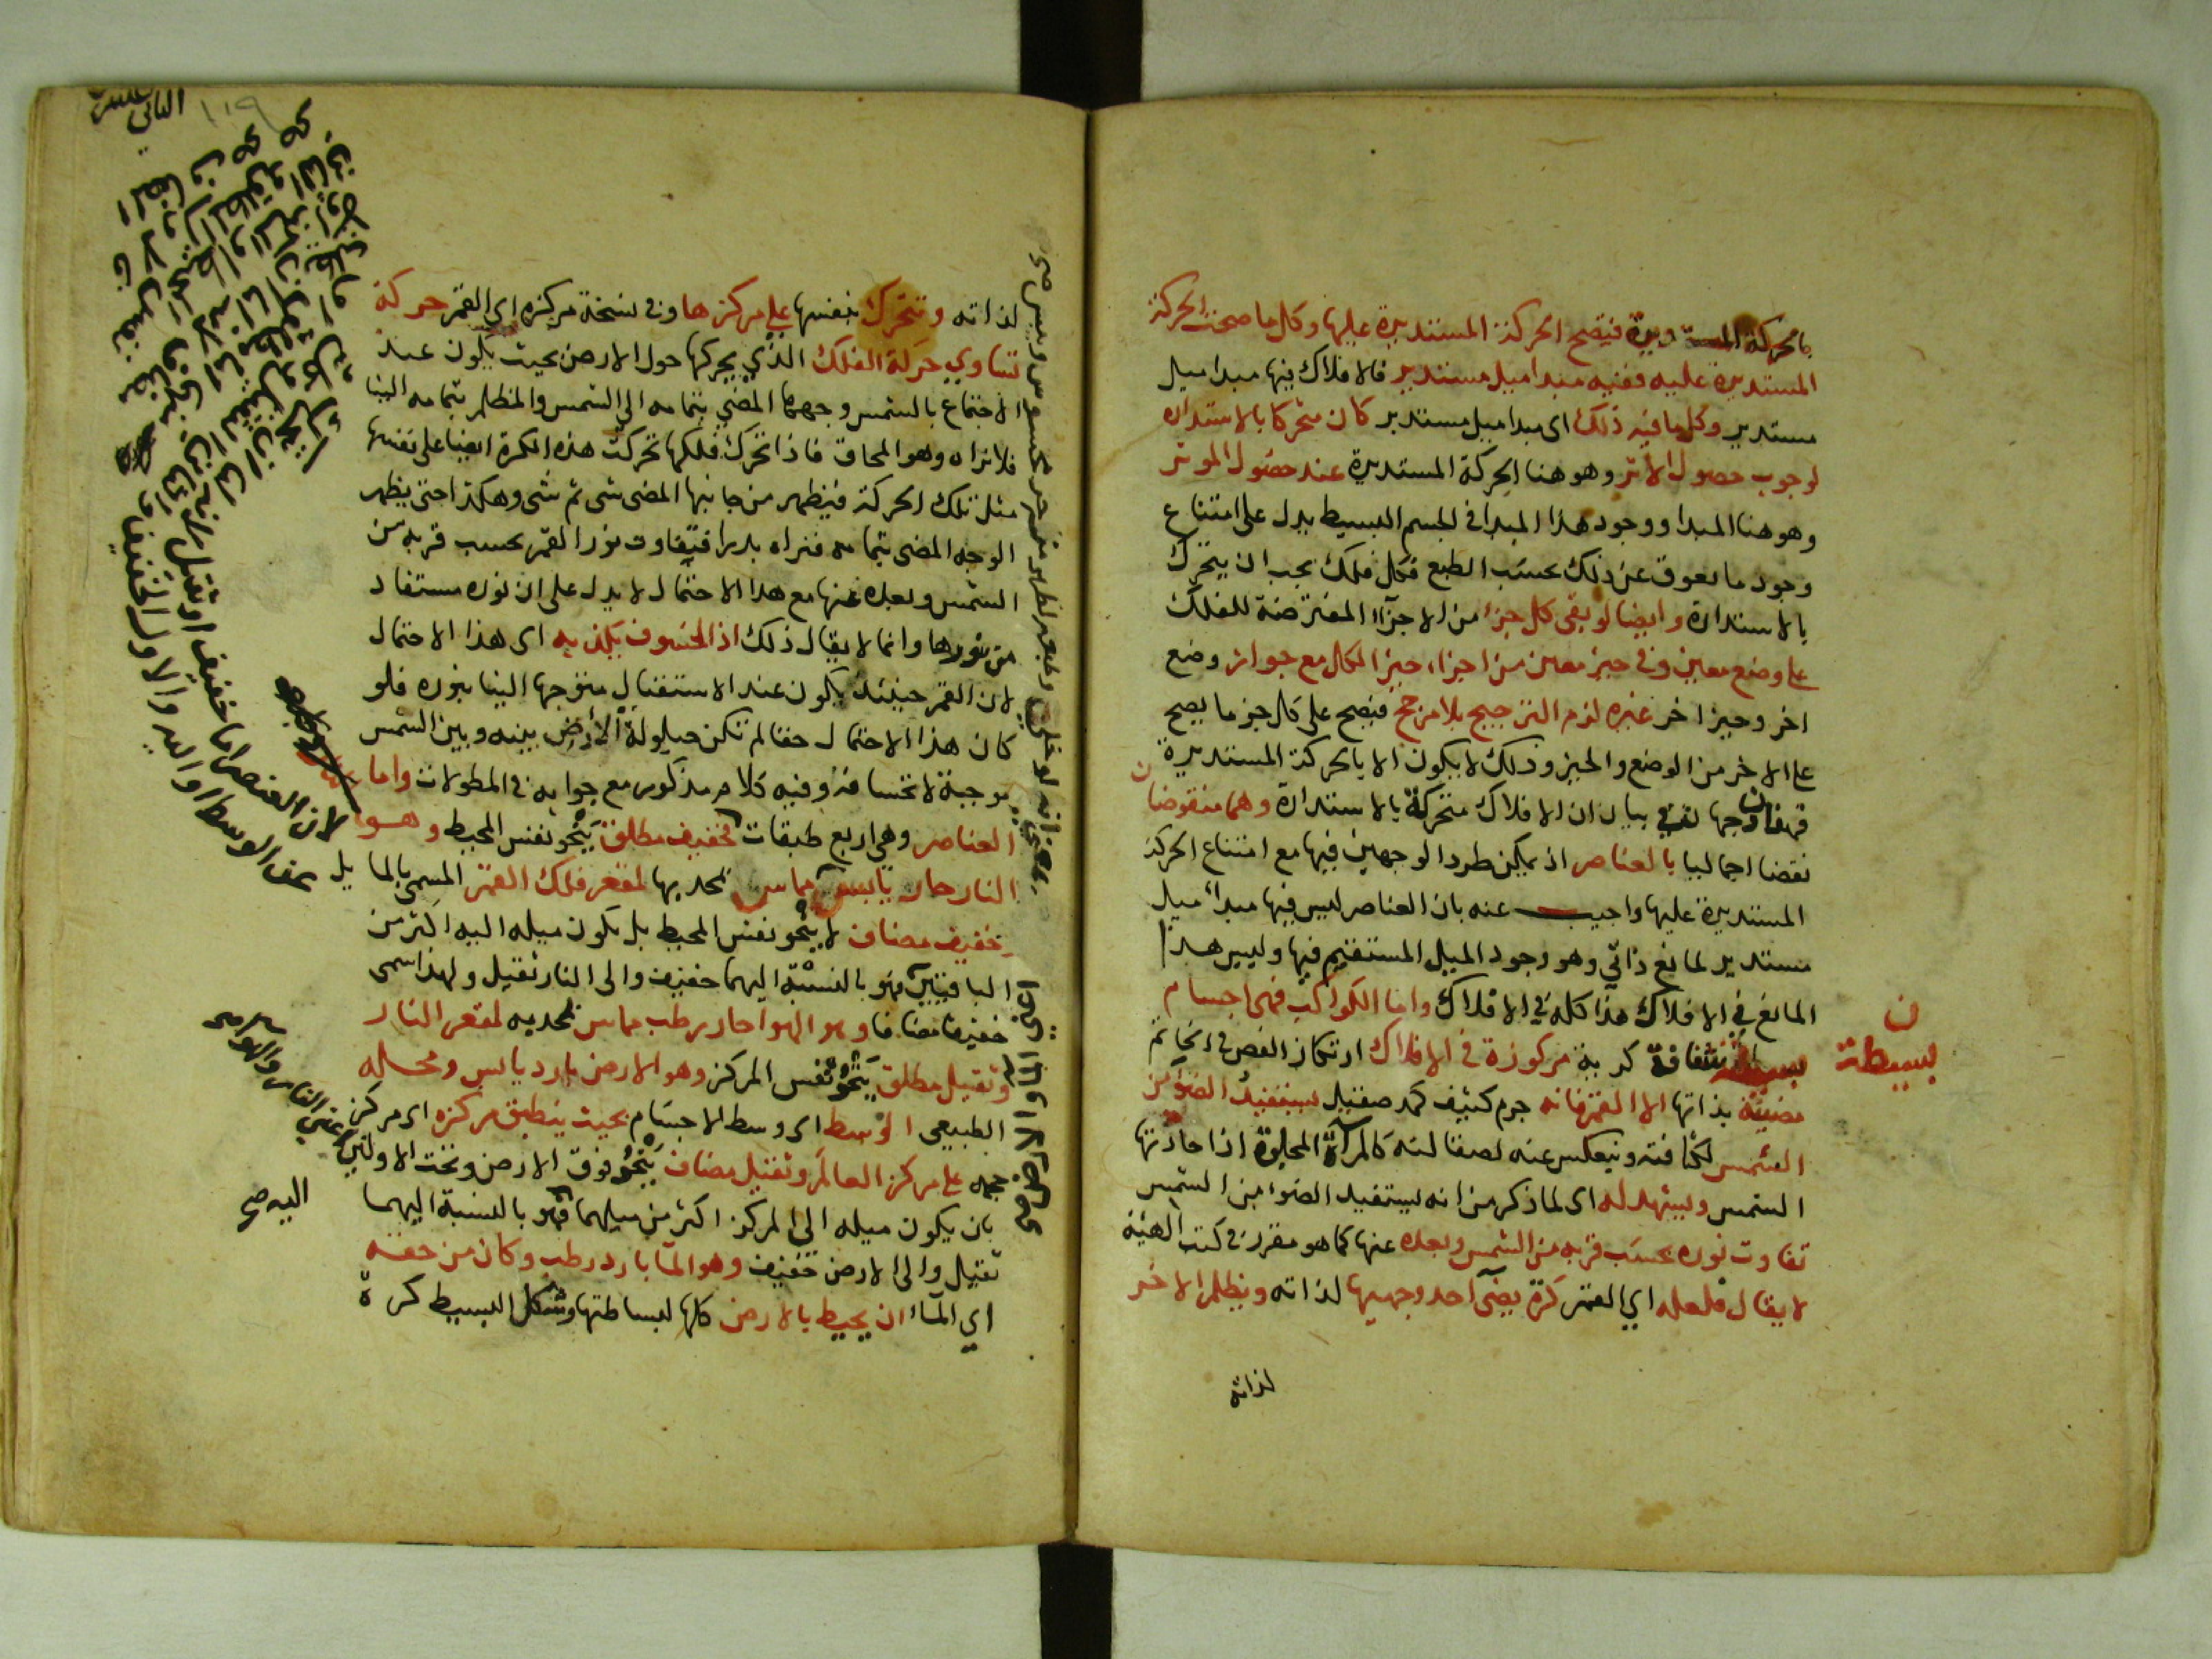 بالحركة المستديرة فيصح الحركة المستديرة عليها وكل ما صحت الحركة
المستديرة عليه ففيه مبدا ميل مستدير فالافلاك فيها مبدا ميل
مستدير وكل ما فيه ذلك اى مبدا ميل مستدير كان متحركا بالاستداره
لوجوب حصول الاثر وهو هنا الحركة المستديرة عند حضول الموثر
وهو هنا المبدا ووجود هذا المبدا فى الجسم البسيط يدل على امتناع
وجود ما يعوق عن ذلك بحسب الطبع فكل فلك يجب ان يتحرك
بالاستدارة وايضا لو بقى كل جزء من الاجزآء المفترضة للفلك
على وضع معين وفى حيز معين من اجزاء حيز الكل مع جواز وضع
اخر وحيز اخر غيره لزم الترجيح بلا مرجح فيصح على كل جز ما يصح
على الاخر من الوضع والحيز وذلك لا يكون الا بالحركة المستديرة
فهذان وجهان فى بيان ان الافلاك متحركة بالاستدارة وهما منقوضان
نقضا اجماليا بالعناصر اذ يمكن طرد الوجهين فيها مع امتناع الحركة
المستديرة عليها واجيب عنه بان العناصر ليس فيها مبدا ميل
مستدير لمانع ذاتي وهو وجود الميل المستقيم فيها وليس هذا
المانع في الافلاك هذا كله في الافلاك واما الكواكب فهى اجسام
شفافة كرية مركوزة فى الافلاك ارتكاز الفص فى الخاتم
ن
بسيطة
مضيئة بذاتها الا القمر فانه جرم كثيف كمد صقيل يستفيد الضوء من
الشمس لكثافته وينعكس عنه لصقالته كالمرآة المجلوة اذا حاذتها
الشمس ويشهد له اى لما ذكر من انه يستفيد الضوء من الشمس
تفاوت نوره بحسب قربه من الشمس وبعده عنها كما هو مقرر فى كتب الهيئة
لا يقال فلعله اي القمر كرة يضئ احد وجهيها لذاته ويظلم الاخر
لذاته
١١٩
لذاته وتتحرك بنفسها على مركزها وفى نسخة مركزه اي القمر حركة
تساوي حركة الفلك الذي يحركها حول الارض بحيث يكون عند
الاجتماع بالشمس وجهها المضي بتمامه الى الشمس والمظلم بتمامه الينا
فلا نراه وهو المحاق فاذا تحرك فلكها تحركت هذه الكرة ايضا على نفسها
مثل تلك الحركة فيظهر من جانبها المضى شى ثم شى وهكذا حتى يظهر
الوجه المضى بتمامه فنراه بدرا فتفاوت نور القمر بحسب قربه من
الشمس وبعده عنها مع هذا الاحتمال لا يدل على ان نوره مستفاد
من نورها وانما لا يقال ذلك اذ الخسوف يكذبه اى هذا الاحتمال
لان القمر حينئذ يكون عند الاستقبال متوجها الينا بنوره فلو
كان هذا الاحتمال حقا لم تكن حيلولة الأرض بينه وبين الشمس
موجبة لانخسافه وفيه كلام مذكور مع جوابه فى المطولات واما
العناصر وهي اربع طبقات فخفيف مطلق ينحو نفس المحيط وهو
النار حار يابس مماس بمحدبها لمقعر فلك القمر المسمى بالمايل
خفيف مضاف لا ينحو نفس المحيط بل يكون ميله اليه اكثر من
الباقيتين فهو بالنسبة اليهما خفيف والى النار ثقيل ولهذا سمى
خفيفا مضافا وهو الهوا حار رطب مماس بمحدبه لمقعر النار
وثقيل مطلق ينحو نفس المركز وهو الارض بارد يابس ومحله
الطبيعى الوسط اى وسط الاجسام بحيث ينطبق مركزه اى مركز
حجمه على مركز العالم وثقيل مضاف ينحو فوق الارض وتحت الاولتين
بان يكون ميله الى المركز اكثر من ميلهما فهو بالنسبة اليهما
ثقيل والى الارض خفيف وهو الما بارد رطب وكان من حقه
اي المآء ان يحيط بالارض كلها لبساطتها وشكل البسيط كرة
لان العنصر اما خفيف او ثقيل
اعنى النار والهوى صح
اليه صح